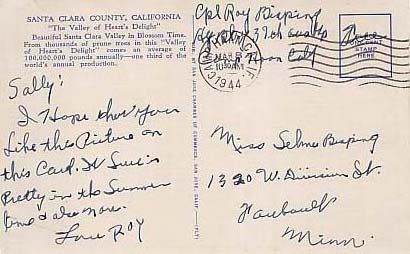 SANTA CLARA COUNTY, CALIFORNIA
"The Valley of Heart's Delight"
Beautiful Santa Clara Valley in Blossom Time.
From thousands of prune trees in this "Valley
of Heart's Delight" comes an average of
100,000,000 pounds annually—one third of the
world's annual production.
Sally:
I Hope that You
Like this Picture on
this Card. It Sure is
Pretty in the Summer
time & also now.
Love ROY
Cpl Roy Bisping
Calif
Free
PLACE
STAMP
HERE
MAR
10 AM
1944
Miss Selma Bisping
1320 W. Division St.
Faribault
Minn.